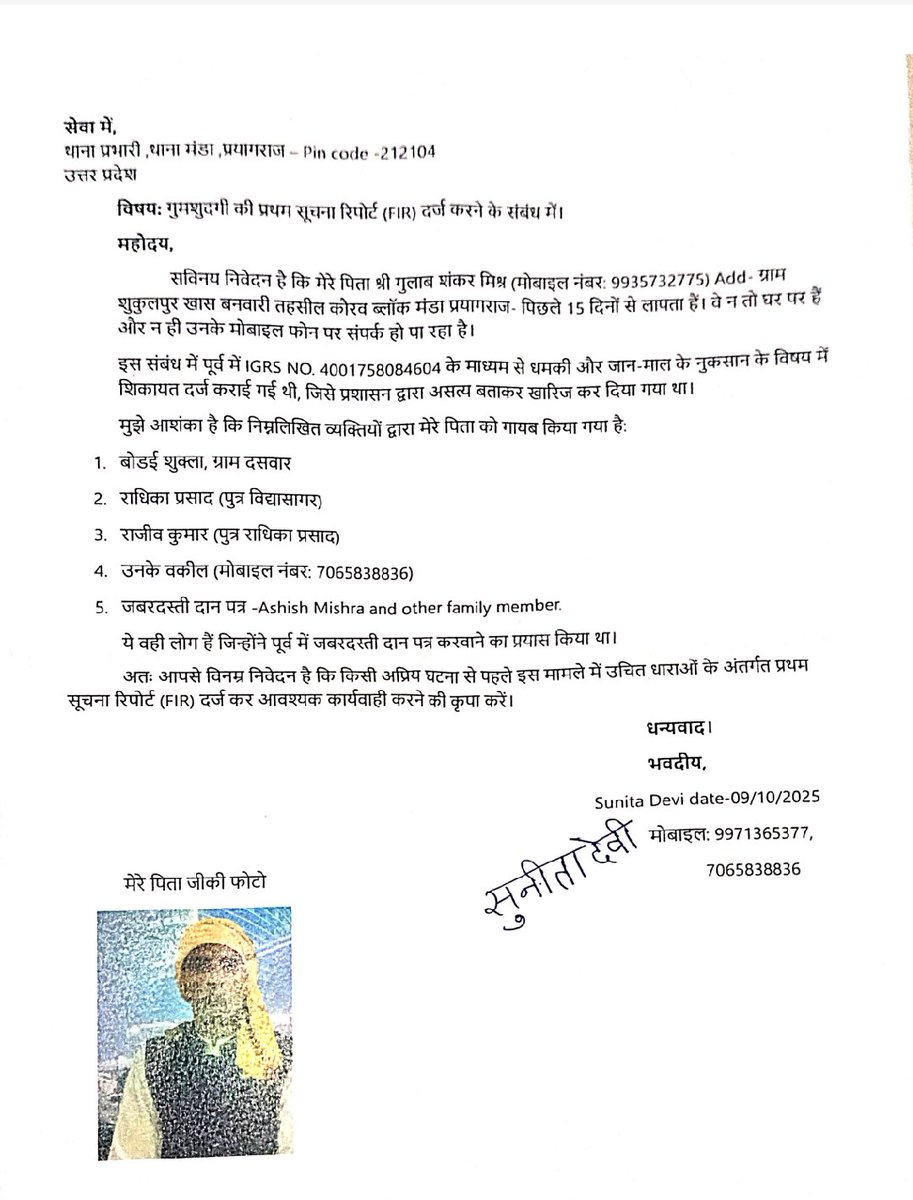 सेवा में,
थाना प्रभारी ,थाना मंडा ,प्रयागराज – Pin code -212104
उत्तर प्रदेश
विषय: गुमशुदगी की प्रथम सूचना रिपोर्ट (FIR) दर्ज करने के संबंध में।
महोदय,
सविनय निवेदन है कि मेरे पिता श्री गुलाब शंकर मिश्र (मोबाइल नंबर: 9935732775) Add- ग्राम
शुकुलपुर खास बनवारी तहसील कोरव ब्लॉक मंडा प्रयागराज- पिछले 15 दिनों से लापता हैं। वे न तो घर पर हैं
और न ही उनके मोबाइल फोन पर संपर्क हो पा रहा है।
इस संबंध में पूर्व में IGRS NO. 4001758084604 के माध्यम से धमकी और जान-माल के नुकसान के विषय में
शिकायत दर्ज कराई गई थी, जिसे प्रशासन द्वारा असत्य बताकर खारिज कर दिया गया था।
मुझे आशंका है कि निम्नलिखित व्यक्तियों द्वारा मेरे पिता को गायब किया गया है:
1. बोडई शुक्ला, ग्राम दसवार
2. राधिका प्रसाद (पुत्र विद्यासागर)
3. राजीव कुमार (पुत्र राधिका प्रसाद)
4. उनके वकील (मोबाइल नंबर: 7065838836)
5. जबरदस्ती दान पत्र -Ashish Mishra and other family member.
ये वही लोग हैं जिन्होंने पूर्व में जबरदस्ती दान पत्र करवाने का प्रयास किया था।
अतः आपसे विनम्र निवेदन है कि किसी अप्रिय घटना से पहले इस मामले में उचित धाराओं के अंतर्गत प्रथम
सूचना रिपोर्ट (FIR) दर्ज कर आवश्यक कार्यवाही करने की कृपा करें।
धन्यवाद।
भवदीय,
Sunita Devi date-09/10/2025
सुनीता देवी
मोबाइल: 9971365377,
7065838836
मेरे पिता जीकी फोटो